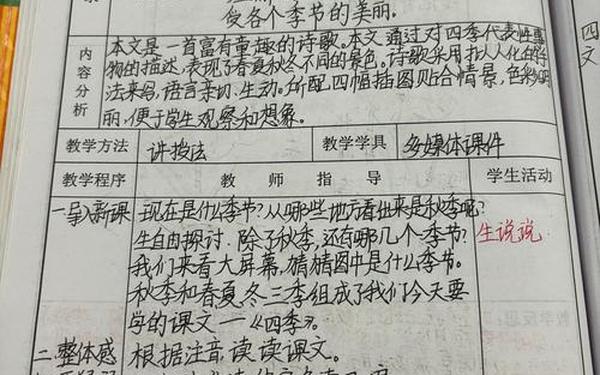 使各个季节的美丽。
内容分析
本文是一首富有童趣的诗歌。本文通过对四季代表性事
物的描述,表现了春夏秋冬不同的景色。诗歌采用拟人化的手
法来写,语言亲切、生动。所配四幅插图贴合情景,色彩明
丽,便于学生观察和想象。
教学方法 讲授法 教学学具 多媒体课件
教学程序 教师指导 学生活动
一导入新课 现在是什么季节?从哪些地方看出来是秋季呢?
生自由探讨.除了秋季,还有哪几个季节? 生说说
我们来看大屏幕,猜猜图中是什么季节。
秋季和春夏、冬三季组成了我们今天要
学的课文—《四季》。
二.整体感 根据注音读读课文。